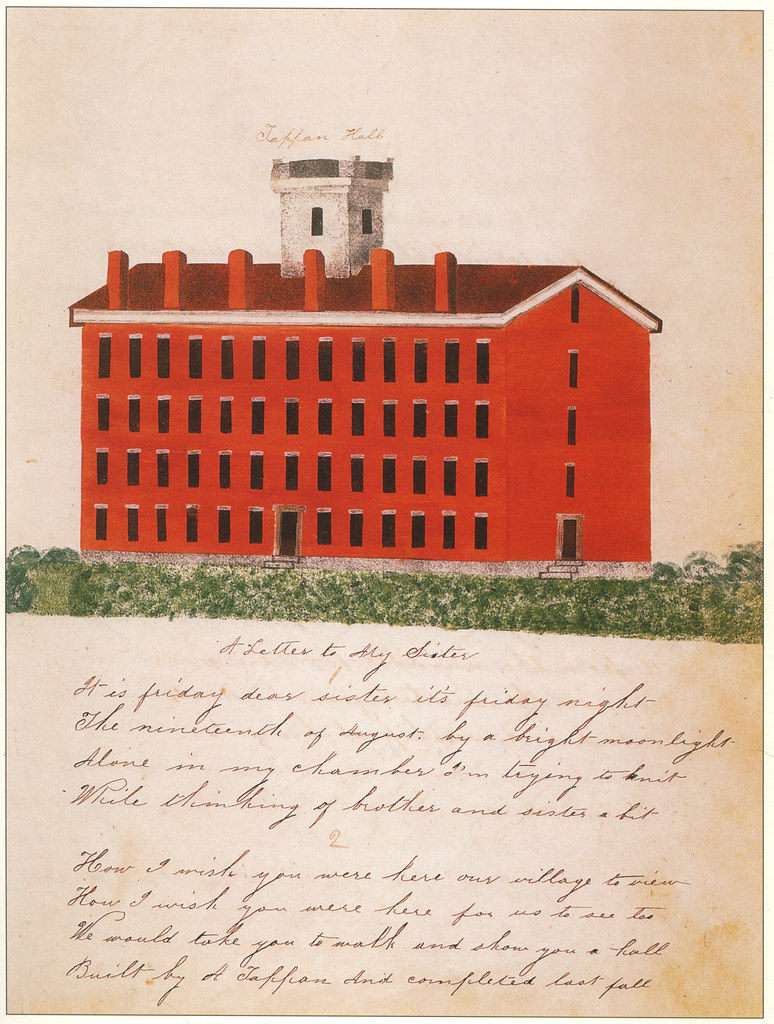 Tappan Hall
A Letter to My Sister
1
It is friday dear sister it's friday night
The nineteenth of August. by a bright moonlight
Alone in my chamber I'm trying to knit
While thinking of brother and sister a bit
2
How I wish you were here our village to view
How I wish you were here for us to see too
We would take you to walk and show you a hall
Built by A Tappan And completed last fall